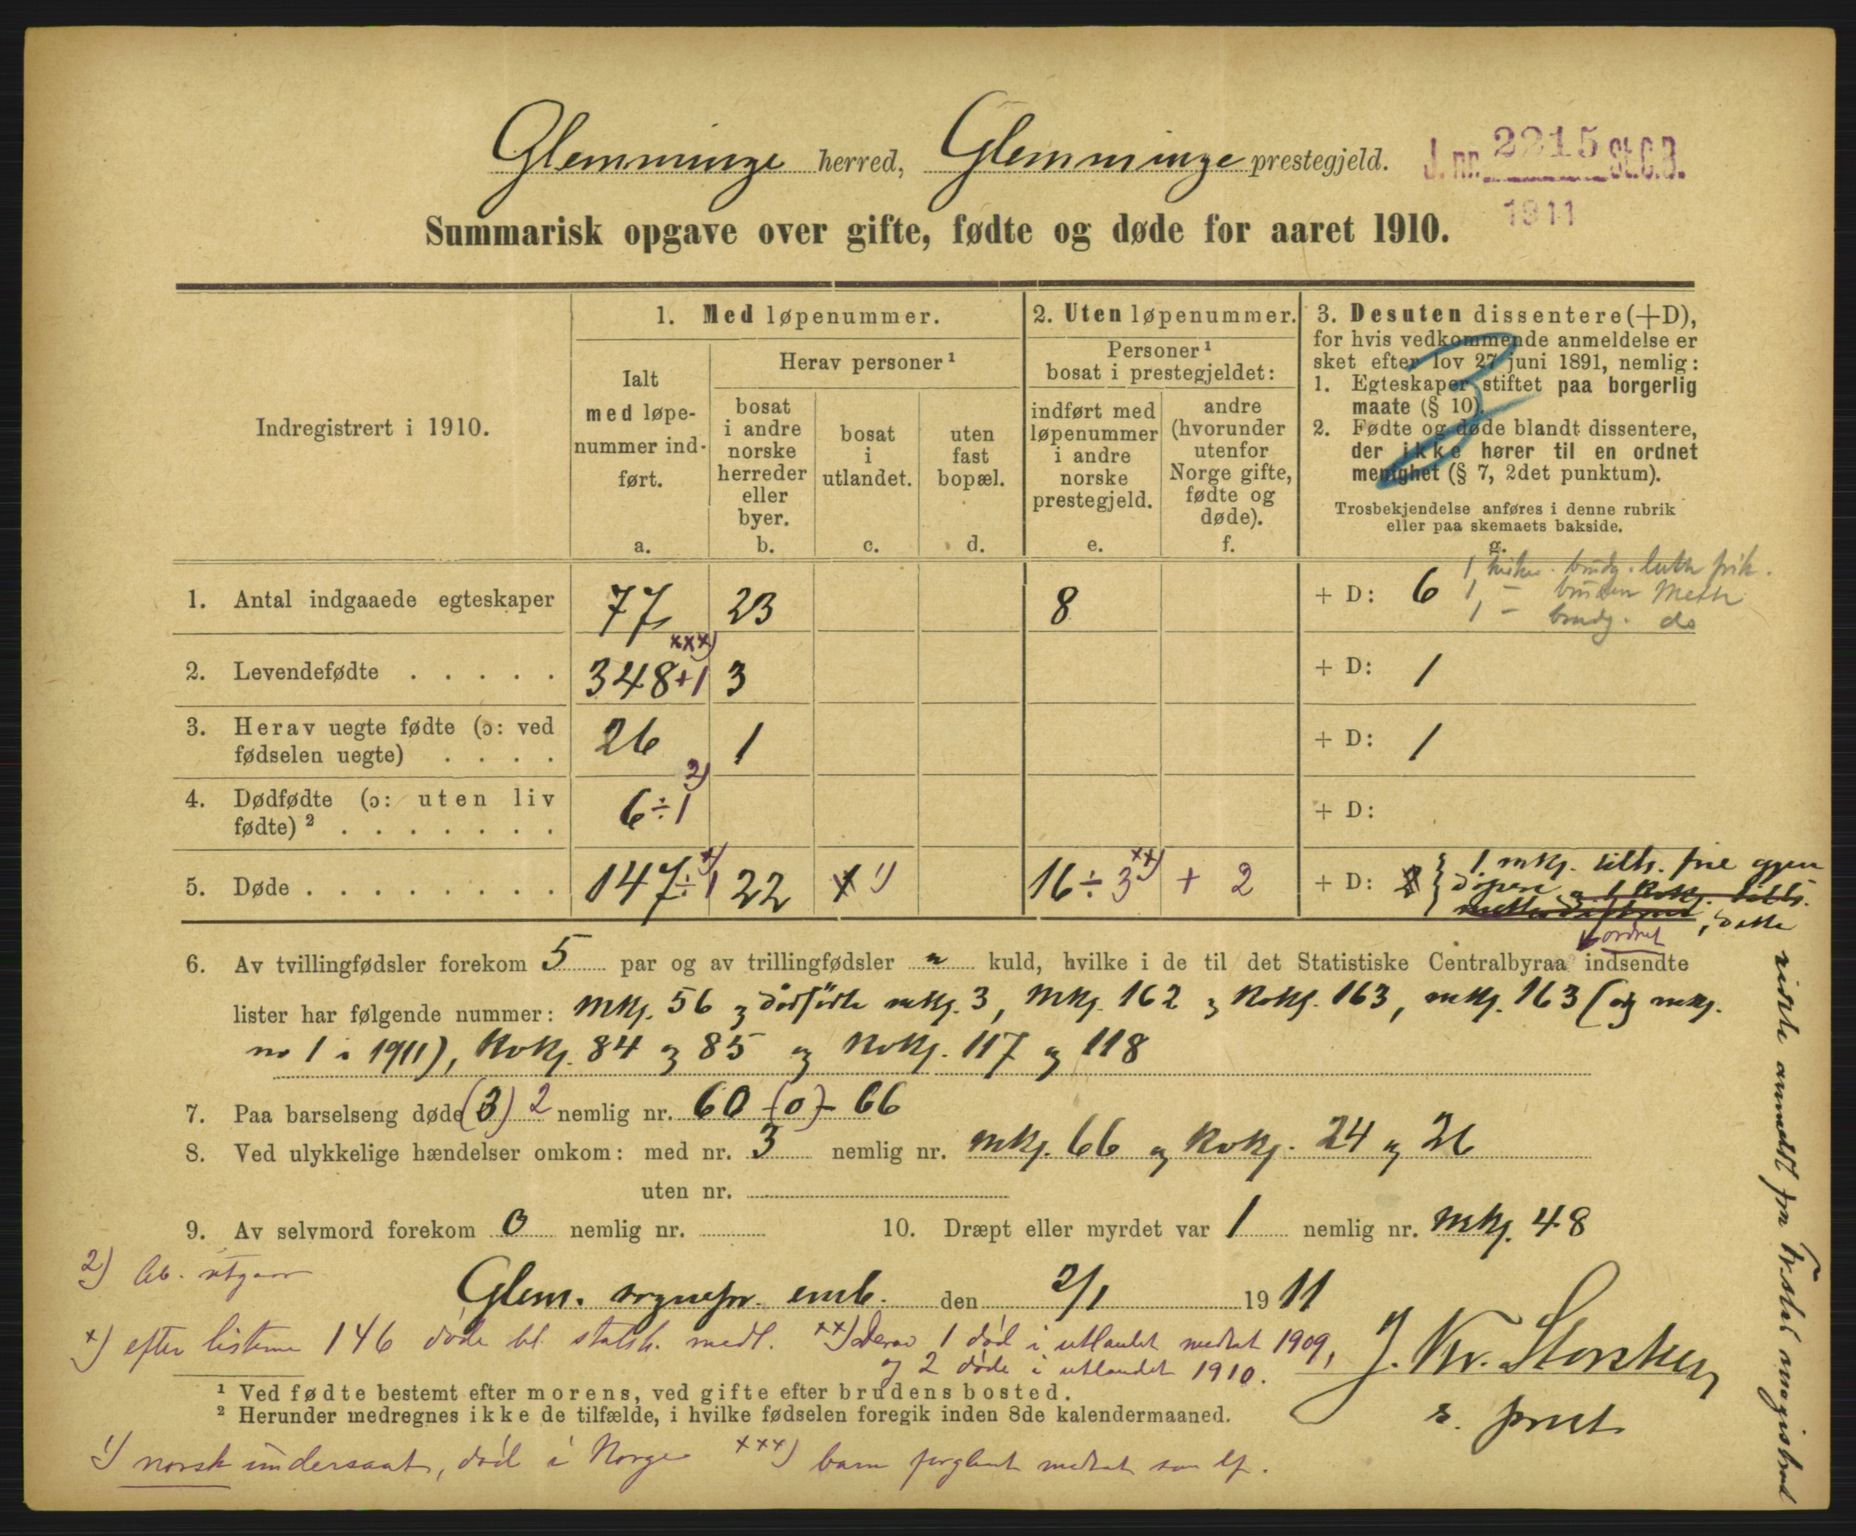 Glemminge herred, Glemminge prestegjeld.
J. nr. 2215 St.C.B.
1911
Summarisk opgave over gifte, fødte og døde for aaret 1910.
Indregistrert i 1910.
1. Med løpenummer.
Ialt med løpe-nummer ind-ført.
a.
Herav personer ¹
bosat i andre norske herreder eller byer.
b.
bosat i utlandet.
c.
uten fast bopæl.
d.
2. Uten løpenummer.
Personer ¹ bosat i prestegjeldet:
indført med løpenummer i andre norske prestegjeld.
e.
andre (hvorunder utenfor Norge gifte, fødte og døde).
f.
3. Desuten dissentere (+D),
for hvis vedkommende anmeldelse er
sket efter lov 27 juni 1891, nemlig:
1. Egteskaper stiftet paa borgerlig
maate (§ 10).
2. Fødte og døde blandt dissentere,
der ikke hører til en ordnet
menighet (§ 7, 2det punktum).
Trosbekjendelse anføres i denne rubrik
eller paa skemaets bakside.
g.
1. Antal indgaaede egteskaper 77 23 8 + D: 6
1 brudg. luth frik.
1 - bruden Meth
1 - brudg. do
2. Levendefødte . . . . . 348 +1 xxx) 3 + D: 1
3. Herav uegte fødte (ɔ: ved
fødselen uegte) . . . . 26 1 + D: 1
4. Dødfødte (ɔ: uten liv
fødte) ² . . . . . . . 6 ÷ 1 2) + D:
5. Døde . . . . . . . . 147 ÷ 1 x) 22 1 1) 16 ÷ 3 xx) + 2 + D: 2
1 mkj. tilh. frie gjen
døpere og 1 kvkj. tilh.
ordnet
6. Av tvillingfødsler forekom 5 par og av trillingfødsler " kuld, hvilke i de til det Statistiske Centralbyraa indsendte
lister har følgende nummer: mkj. 56 og dødfødte mkj. 3, mkj. 162 og kvkj. 163, mkj. 163 (og mkj.
no 1 i 1911), kvkj. 84 og 85 og kvkj. 117 og 118
7. Paa barselseng døde (3) 2 nemlig nr. 60 - (0) - 66
8. Ved ulykkelige hændelser omkom: med nr. 3 nemlig nr. mkj. 66 og kvkj. 24 og 26
uten nr.
9. Av selvmord forekom 0 nemlig nr.
10. Dræpt eller myrdet var 1 nemlig nr. mkj. 48
2) Ab. utgaar
Glem. sognepr. emb. den 2/1 1911
J. Kr. Storsken
s. prest
x) efter listerne 146 døde bl. statsk. medl. xx) Derav 1 død i utlandet medtat 1909,
og 2 døde i utlandet 1910.
¹ Ved fødte bestemt efter morens, ved gifte efter brudens bosted.
² Herunder medregnes ikke de tilfælde, i hvilke fødselen foregik inden 8de kalendermaaned.
1) norsk undersaat, død i Norge xxx) barn forglemt medtat som lf.
anmeldt fra Fr.stad magistrat